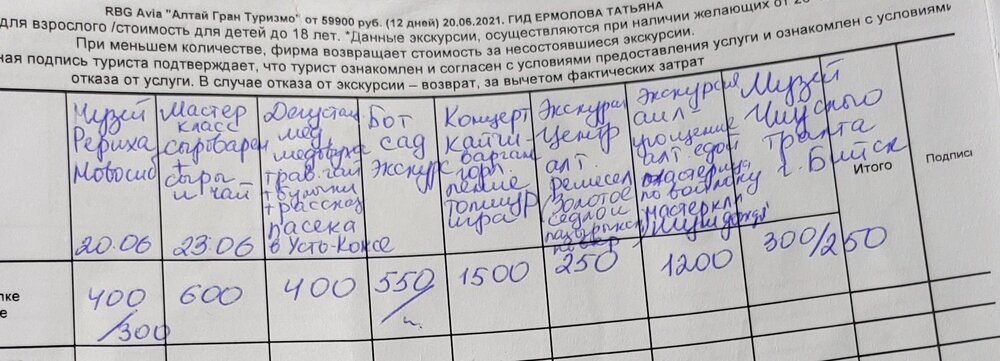 RBG Avia "Алтай Гран Туризмо" от 59900 руб. (12 дней) 20.06.2021. ГИД ЕРМОЛОВА ТАТЬЯНА
для взрослого /стоимость для детей до 18 лет. *Данные экскурсии, осуществляются при наличии желающих от 20
При меньшем количестве, фирма возвращает стоимость за несостоявшиеся экскурсии.
ная подпись туриста подтверждает, что турист ознакомлен и согласен с условиями предоставления услуги и ознакомлен с условиями
отказа от услуги. В случае отказа от экскурсии – возврат, за вычетом фактических затрат
Музей
Рериха
Новосиб
20.06
Мастер
класс
сыроварен
+
сыры
и чай
23.06
Дегустац
мед,
медовуха
трав. чай
+ булочки
+ рассказ
пасека
в Усть-Коксе
Бот
сад
Экскурс
Концерт
кайчи-
варган
горл.
пение
топшур
игра
Экскурси
Центр
алт.
ремесел
(Золотое
седло и
Экскурсия
аил-
угощение
алт. едой
по войлоку
мастеркл
Музей
Чуйского
тракта
г. Бийск
Итого
Подпись
лке
е
400
/300
600
400
550/
ч.
1500
250
1200
300/250